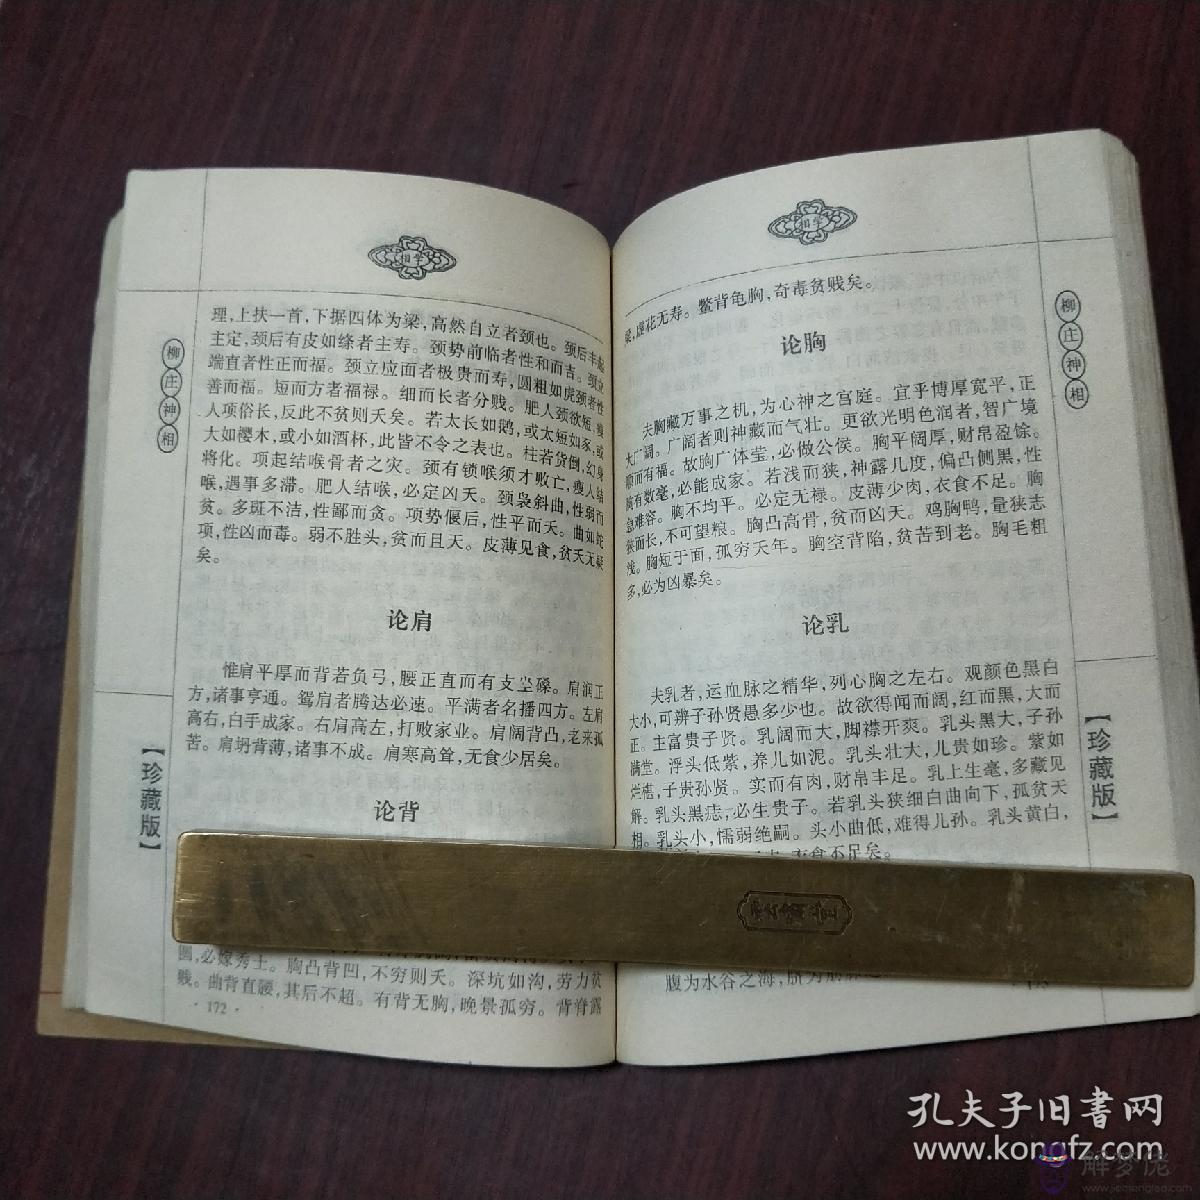 相学
柳庄神相
【珍藏版】
理,上扶一首,下据四体为梁,高然自立者颈也。颈后丰起
主定,颈后有皮如绦者主寿。颈势前临者性和而吉。颈
端直者性正而福。颈立应面者极贵而寿,圆粗如虎颈者性
善而福。短而方者福禄。细而长者分贱。肥人颈欲短,瘦
人项俗长,反此不贫则夭矣。若太长如鹅,或太短如豕,或
大如樱木,或小如酒杯,此皆不令之表也。柱若货倒,幻身
将化。项起结喉骨者之灾。颈有锁喉须才败亡,瘦人结
喉,遇事多滞。肥人结喉,必定凶夭。颈袅斜曲,性弱而
贫。多斑不洁,性鄙而贪。项势偃后,性平而夭。曲如蛇
项,性凶而毒。弱不胜头,贫而且夭。皮薄见食,贫夭无疑
矣。
论肩
惟肩平厚而背若负弓,腰正直而有支坐磉。肩润正
方,诸事亨通。鸳肩者腾达必速。平满者名播四方。左肩
高右,白手成家。右肩高左,打败家业。肩阔背凸,老来孤
苦。肩坍背薄,诸事不成。肩寒高耸,无食少居矣。
论背
圆,必嫁秀士。胸凸背凹,不穷则夭。深坑如沟,劳力贫
贱。曲背直腰,其后不超。有背无胸,晚景孤穷。背脊露
·172·
相学
柳庄神相
【珍藏版】
梁,虚花无寿。鳖背龟胸,奇毒贫贱矣。
论胸
夫胸藏万事之机,为心神之宫庭。宜乎博厚宽平,正
大广阔。广阔者则神藏而气壮。更欲光明色润者,智广境
顺而有福。故胸广体莹,必做公侯。胸平阔厚,财帛盈馀。
胸有数毫,必能成家。若浅而狭,神露几度,偏凸侧黑,性
急难容。胸不均平。必定无禄。皮薄少肉,衣食不足。胸
狭而长,不可望粮。胸凸高骨,贫而凶夭。鸡胸鸭,量狭志
浅。胸短于面,孤穷夭年。胸空背陷,贫苦到老。胸毛粗
多,必为凶暴矣。
论乳
夫乳者,运血脉之精华,列心胸之左右。观颜色黑白
大小,可辨子孙贤愚多少也。故欲得闻而阔,红而黑,大而
正。主富贵子贤。乳阔而大,脚襟开爽。乳头黑大,子孙
满堂。浮头低紫,养儿如泥。乳头壮大,儿贵如珍。紫如
烂椹,子贵孙贤。实而有肉,财帛丰足。乳上生毫,多藏见
解。乳头黑痣,必生贵子。若乳头狭细白曲向下,孤贫夭
相。乳头小,懦弱绝嗣。头小曲低,难得儿孙。乳头黄白,
衣食不足矣。
腹为水谷之海,脐为
孔夫子旧书网
www.kongfz.com
解梦佬
www.jiemenglao.com